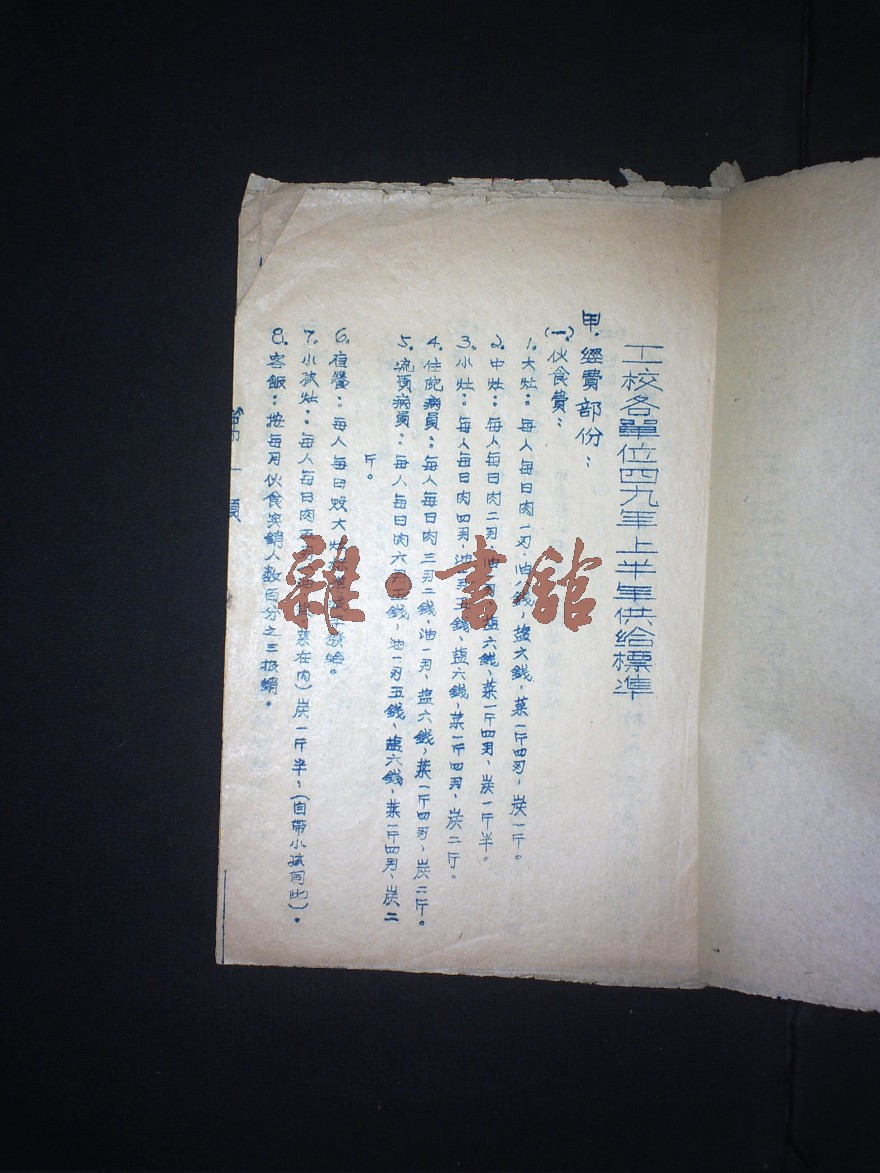 工校各單位四九年上半年供给標準
甲.經費部份：
(一)伙食費：
1.大灶：每人每日肉一刄、油 钱、盐六錢、菜一斤四刄、炭一斤。
2.中灶：每人每日肉二刄、油 盐六錢、菜一斤四刄、炭一斤半。
3.小灶：每人每日肉四刄、油 五錢、盐六錢、菜一斤四刄、炭二斤。
4.住院病員：每人每日肉三刄二錢、油一刄、盐六錢、菜一斤四刄、炭二斤。
5.流 病員：每人每日肉六刄五錢、油一刄五錢、盐六錢、菜一斤四刄、炭二
斤。
6.夜餐：每人每日 大灶标准 發给。
7.小孩灶：每人每日肉 菜在内）炭一斤半、（自帶小孩同此）。
8.客飯：按每月伙食实銷人数百分之三报銷。
第一頁
雜·書舘